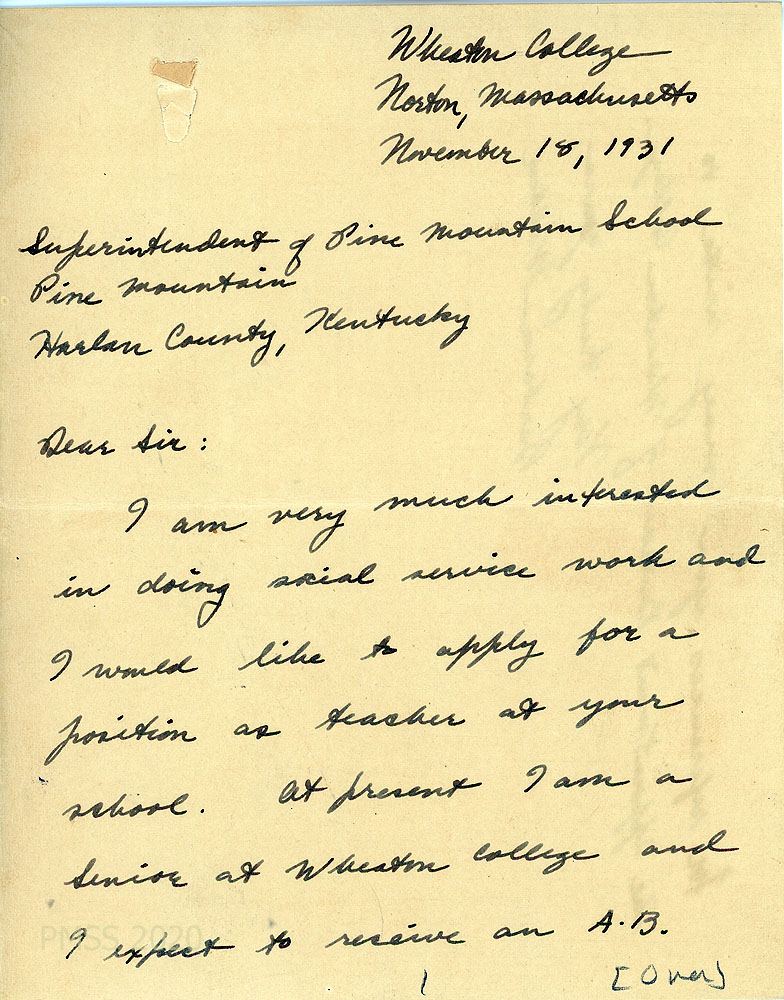 Wheaton College
Norton, Massachusetts
November 18, 1931
Superintendent of Pine Mountain School
Pine Mountain
Harlan County, Kentucky
Dear Sir:
I am very much interested
in doing social service work and
I would like to apply for a
position as teacher at your
school. At present I am a
Senior at Wheaton College and
I expect to receive an A.B.
1 [Over]
PMSS 2020